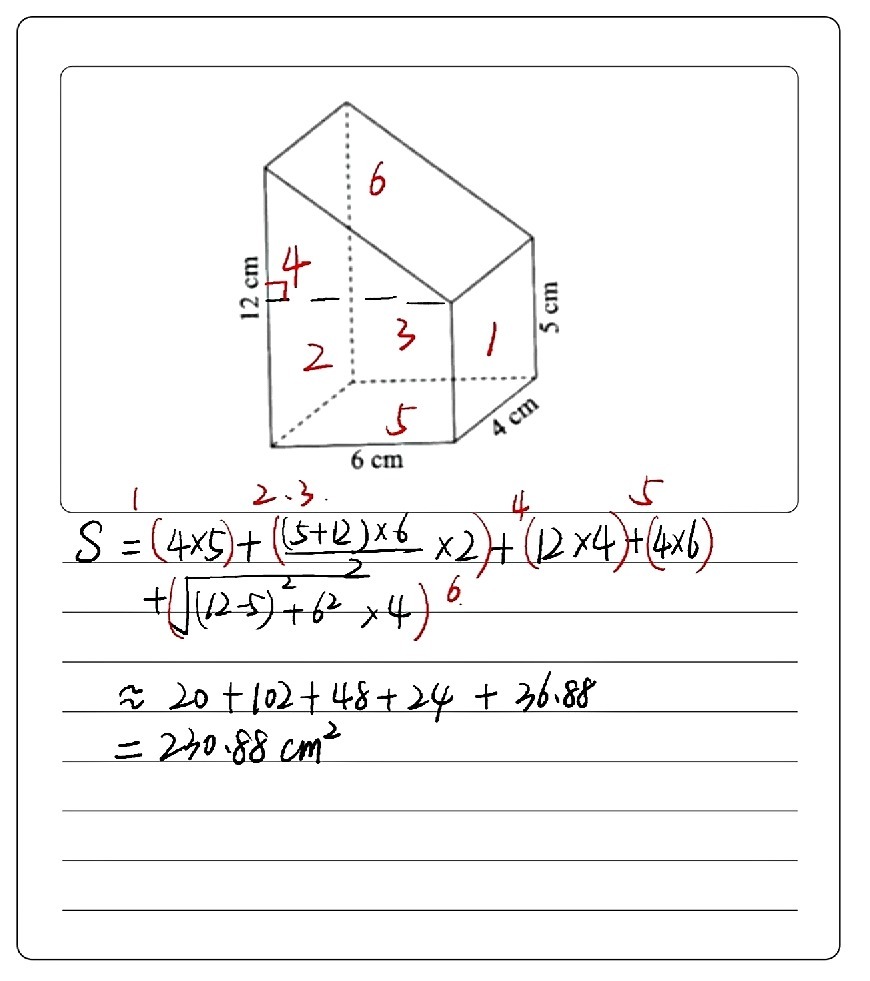 6
4
12 cm
5 cm
3
1
2
5
4 cm
6 cm
1 2.3. 4 5
S = (4×5)+((5+12)×6/2 ×2)+(12×4)+(4×6)
+(√((12-5)²+6²) ×4) 6
≈ 20+102+48+24 + 36.88
= 230.88 cm²